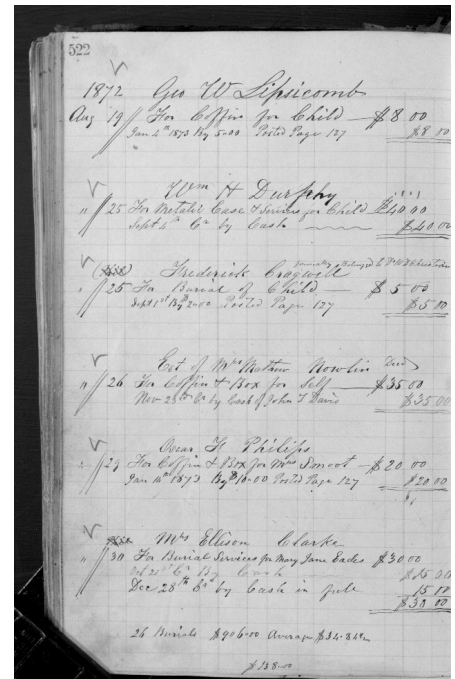 522
1872 Geo W Lipsicomb
Aug 19 For Coffin for Child — $8 00
Jan 4th 1873 By 5=00 Posted Page 127 $8 00
Wm H Durphy
" 25 For Metalic Case & Services for Child $40 00
Sept 4th Cr by Cash $40.00
Frederick Cragwell
" 25 For Burial of Child — $5 00
Sept 1st By 2=00 Posted Page 127 $5 00
Est of Mrs Mathew Nowlin Decd
" 26 For Coffin & Box for Self — $35 00
Nov 28th Cr by Cash of John T Davis $35.00
Oscar H Philips
" 29 For Coffin & Box for Mrs Smoot — $20 00
Jan 14th 1873 By 10=00 Posted Page 127 $20 00
Mrs Ellison Clarke
" 30 For Burial Services for Mary Jane Eades $30 00
Oct 21st Cr By Cash $15 00
Dec 28th Cr by Cash in full 15 00
$30 00
26 Burials $906=00 Average $34.84
$138=00